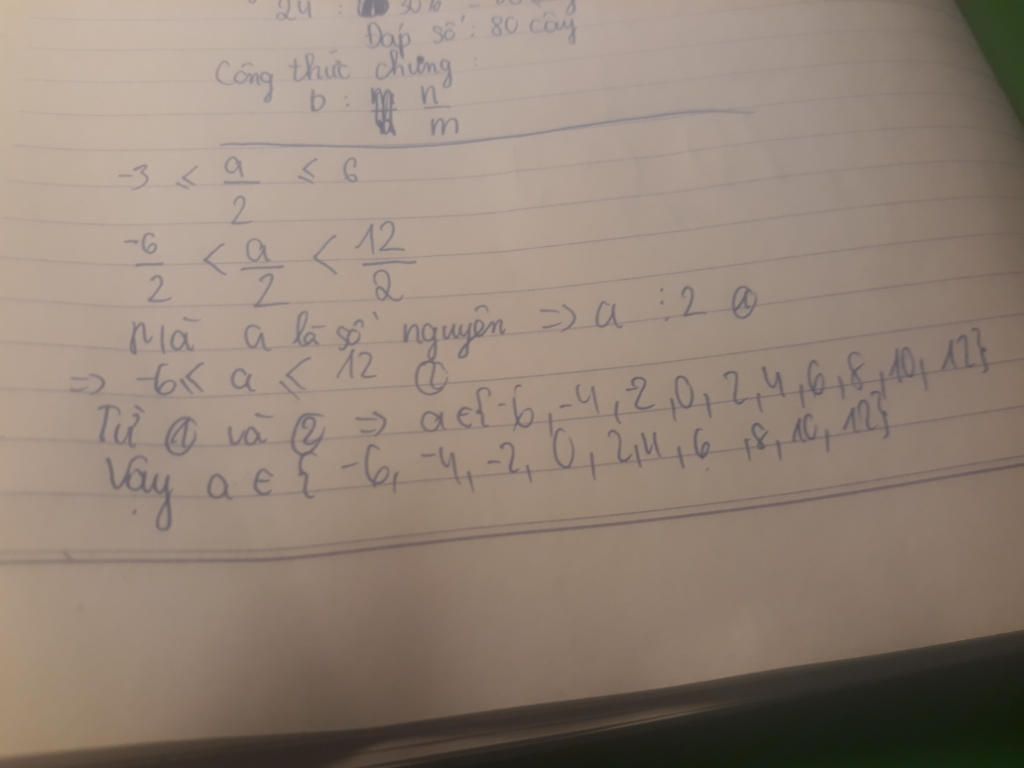 24 : 30%
Đáp số : 80 cây
Công thức chung :
b : n/m
-3 ≤ a/2 ≤ 6
-6/2 < a/2 < 12/2
Mà a là số nguyên => a ⋮ 2 ①
=> -6 ≤ a ≤ 12 ①
Từ ① và ② => a ∈ {-6, -4, -2, 0, 2, 4, 6, 8, 10, 12}
Vậy a ∈ { -6, -4, -2, 0, 2, 4, 6, 8, 10, 12}